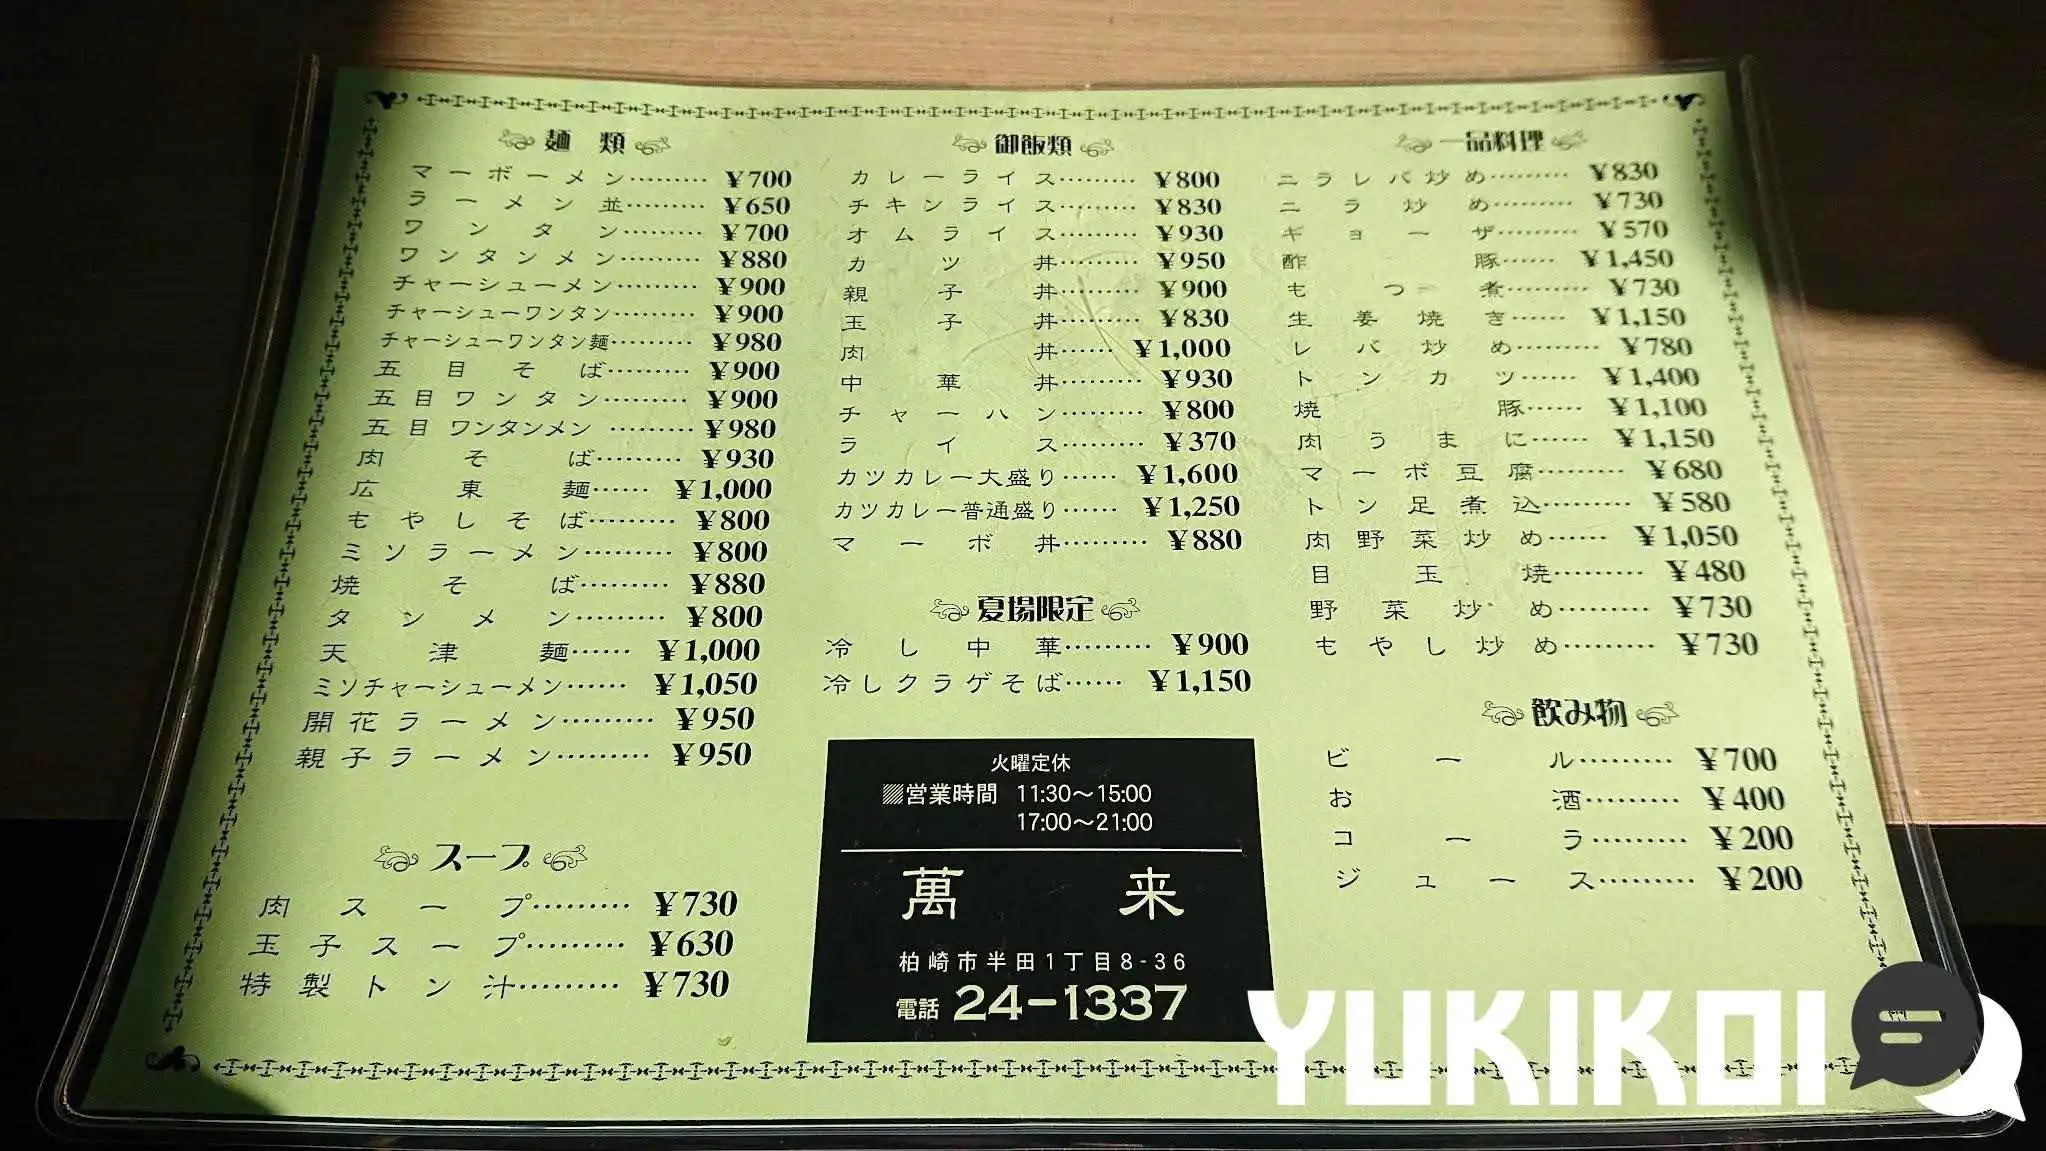 麺類
マーボーメン……… ¥700
ラーメン並……… ¥650
ワンタン……… ¥700
ワンタンメン……… ¥880
チャーシューメン……… ¥900
チャーシューワンタン……… ¥900
チャーシューワンタン麺……… ¥980
五目そば……… ¥900
五目ワンタン……… ¥900
五目ワンタンメン ……… ¥980
肉そば……… ¥930
広東麺…… ¥1,000
もやしそば……… ¥800
ミソラーメン……… ¥800
焼そば……… ¥880
タンメン……… ¥800
天津麺…… ¥1,000
ミソチャーシューメン…… ¥1,050
開花ラーメン……… ¥950
親子ラーメン……… ¥950
スープ
肉スープ……… ¥730
玉子スープ……… ¥630
特製トン汁……… ¥730
御飯類
カレーライス……… ¥800
チキンライス……… ¥830
オムライス……… ¥930
カツ丼……… ¥950
親子丼……… ¥900
玉子丼……… ¥830
肉丼…… ¥1,000
中華丼……… ¥930
チャーハン……… ¥800
ライス……… ¥370
カツカレー大盛り…… ¥1,600
カツカレー普通盛り…… ¥1,250
マーボ丼……… ¥880
夏場限定
冷し中華……… ¥900
冷しクラゲそば…… ¥1,150
火曜定休
営業時間 11:30～15:00
17:00～21:00
萬来
柏崎市半田1丁目8-36
電話 24-1337
一品料理
ニラレバ炒め……… ¥830
ニラ炒め……… ¥730
ギョーザ……… ¥570
酢豚…… ¥1,450
もつ煮……… ¥730
生姜焼き…… ¥1,150
レバ炒め……… ¥780
トンカツ…… ¥1,400
焼豚…… ¥1,100
肉うまに…… ¥1,150
マーボ豆腐……… ¥680
トン足煮込……… ¥580
肉野菜炒め…… ¥1,050
目玉焼……… ¥480
野菜炒め……… ¥730
もやし炒め……… ¥730
飲み物
ビール……… ¥700
お酒……… ¥400
コーラ……… ¥200
ジュース……… ¥200
YUKIKOI